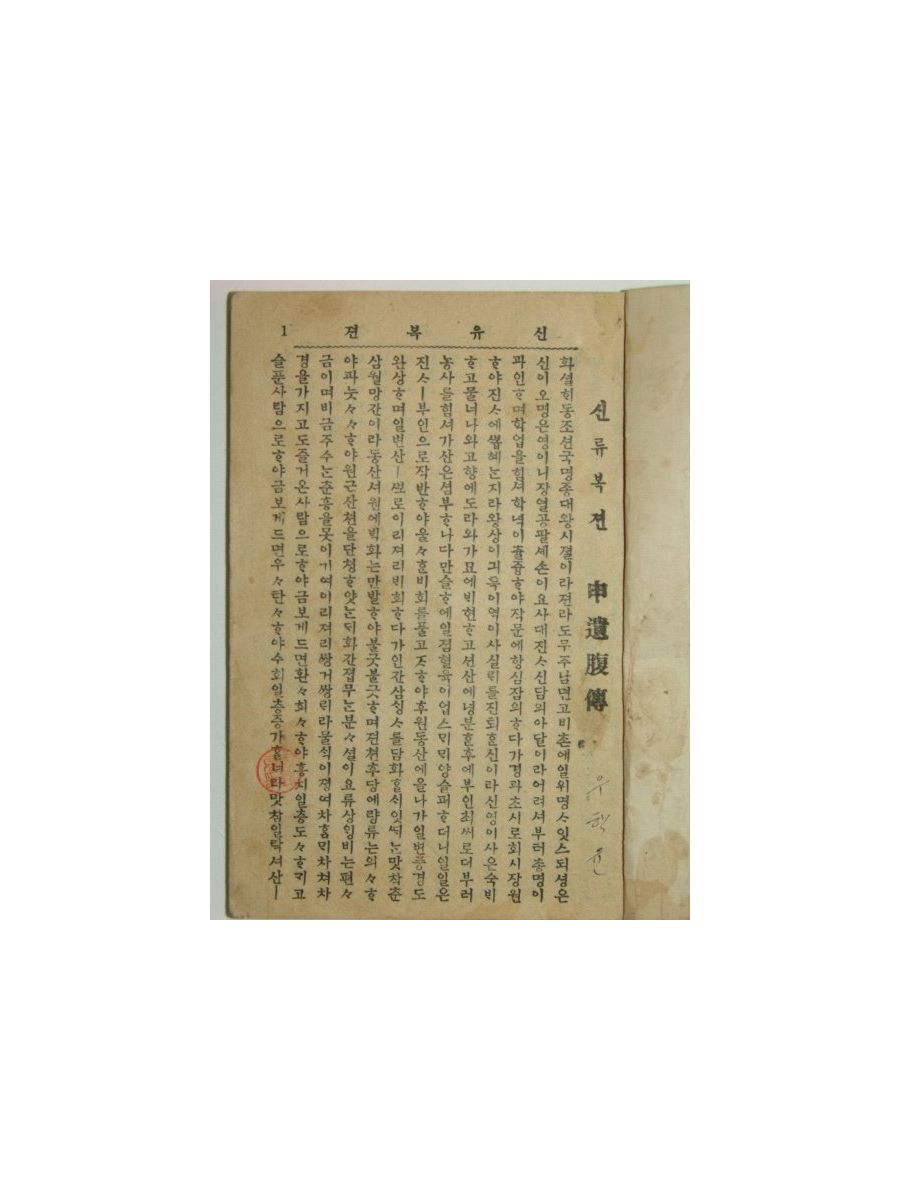 1 젼복유신
신류복젼 申遺腹傳
화셜ᄒᆡ동조션국명종대왕시졀이라젼라도무주남면고비촌에일위명ᄉᆞ잇스되셩은
신이오명은영이니장열공팔셰손이요사대진ᄉᆞ신담의아달이라어려셔부터총명이
과인ᄒᆞ며학업을힘셔학녁이츌즁ᄒᆞ야작문에항심장의ᄒᆞ다가경과초시로회시장원
ᄒᆞ야진ᄉᆞ에ᄲᅩᆸ혜ᄂᆞᆫ지라왕상이 이역이사실ᄂᆡ를진퇴ᄒᆞᆫ신이라신영이사은슉ᄇᆡ
ᄒᆞ고물너나와고향에도라와가묘에ᄇᆡ현ᄒᆞ고션산에녕분ᄒᆞᆫ후에부인최씨로더부러
농사를힘셔가산은셤부ᄒᆞ나다만슬ᄒᆞ에일졈혈육이업스ᄆᆡᄆᆡ양슬퍼ᄒᆞ더니일일은
진ᄉᆞㅣ부인으로작반ᄒᆞ야울々ᄒᆞᆫ비회를풀고ᄌᆞᄒᆞ야후원동산에을나가일변풍경도
완상ᄒᆞ며일변산ㅣ보로이리져리ᄇᆡ회ᄒᆞ다가인간삼ᄉᆡᆼᄉᆞ를담화ᄒᆞᆯᄉᆡ잇ᄯᆡᄂᆞᆫ맛참춘
삼월망간이라동산셔원에ᄇᆡᆨ화는만발ᄒᆞ야불긋불긋ᄒᆞ며젼쳔후당에양류는의々ᄒᆞ
야파릇々々ᄒᆞ야원근산쳔을단쳥ᄒᆞ얏ᄂᆞᆫᄃᆡ화간졉무ᄂᆞᆫ분々셜이요류상ᄋᆡᆼ비는편々
금이며비금주수ᄂᆞᆫ춘흥을못이기여이리져리쌍거쌍ᄅᆡ라물ᄉᆡᆨ이졍여차홈ᄆᆡ차쳐차
경을가지고도즐거온사람으로ᄒᆞ야금보게드면환々희々ᄒᆞ야흥치일층도々ᄒᆞ기고
슬푼사람으로ᄒᆞ야금보게드면우々탄々ᄒᆞ야수회일층증가ᄒᆞᆯ너라맛참일락셔산ㅣ